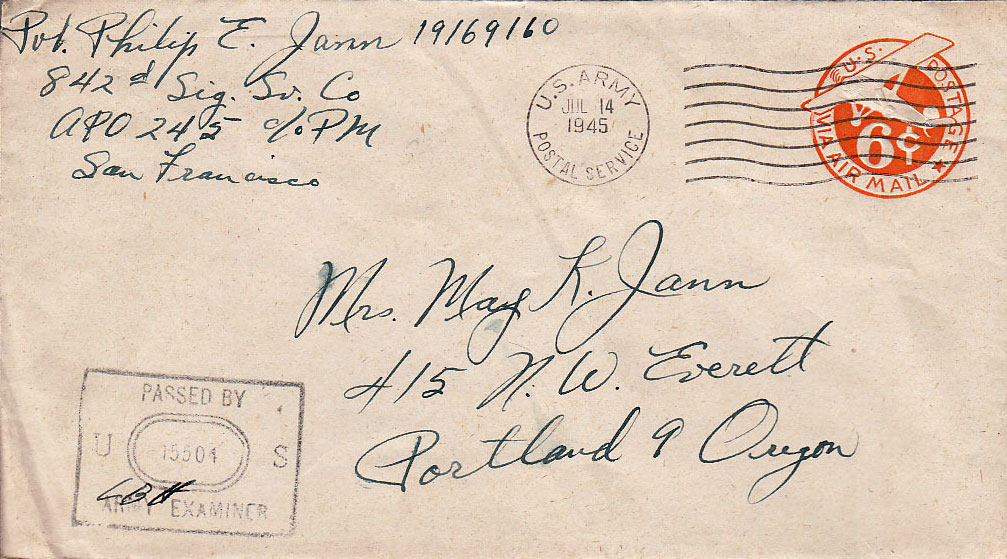 Pvt. Philip E. Jann 19169160
842d Sig. Sv. Co
APO 245 c/o PM
San Francisco
U.S. ARMY
JUL 14
1945
POSTAL SERVICE
U.S. POSTAGE
6¢
VIA AIR MAIL
Mrs. May K. Jann
415 N.W. Everett
Portland 9 Oregon
PASSED BY
U 15504 S
ARMY EXAMINER